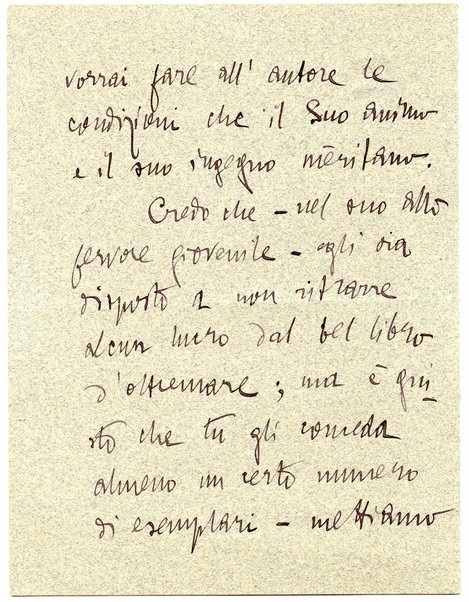 vorrai fare all'autore le
condizioni che il Suo animo
e il suo ingegno mèritano.
Credo che – nel suo alto
fervore giovenile – egli sia
disposto a non ritrarre
alcun lucro dal bel libro
d'oltremare ; ma è giu-
sto che tu gli conceda
almeno un certo numero
di esemplari – mettiamo